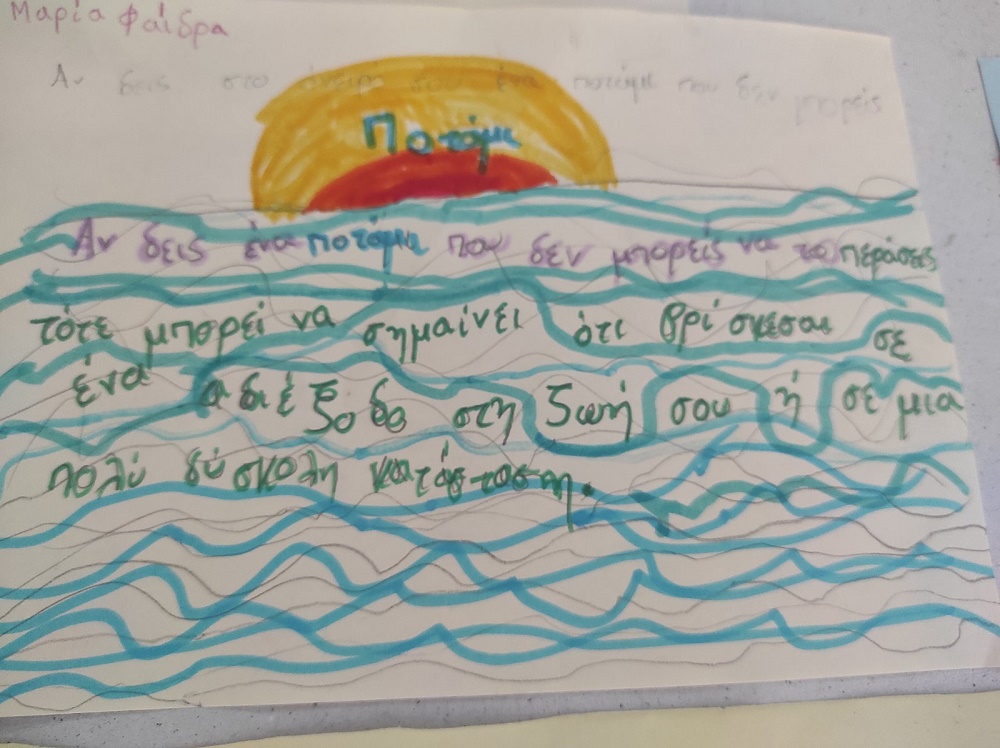 Μαρία Φαίδρα
Αν δεις στο όνειρό σου ένα ποτάμι που δεν μπορείς
Ποτάμι
Αν δεις ένα ποτάμι που δεν μπορείς να το περάσεις
τότε μπορεί να σημαίνει ότι βρίσκεσαι σε
ένα αδιέξοδο στη ζωή σου ή σε μια
πολύ δύσκολη κατάσταση.